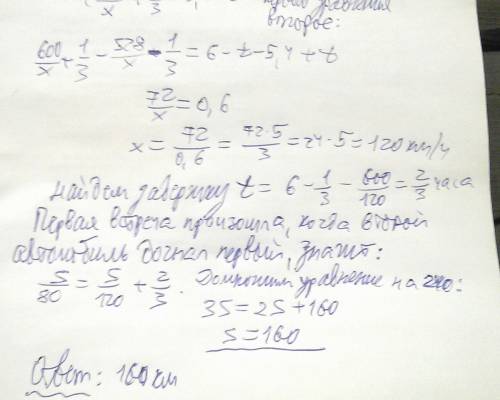 второе:
600/x + 1/3 - 528/x - 1/3 = 6 - t - 5,4 + t
72/x = 0,6
x = 72/0,6 = 72·5/3 = 24·5 = 120 км/ч
Найдем задержку t = 6 - 1/3 - 600/120 = 2/3 часа
Первая встреча произошла, когда второй
автомобиль догнал первый, значит:
S/80 = S/120 + 2/3. Домножим уравнение на 240:
3S = 2S + 160
S = 160
Ответ: 160 км